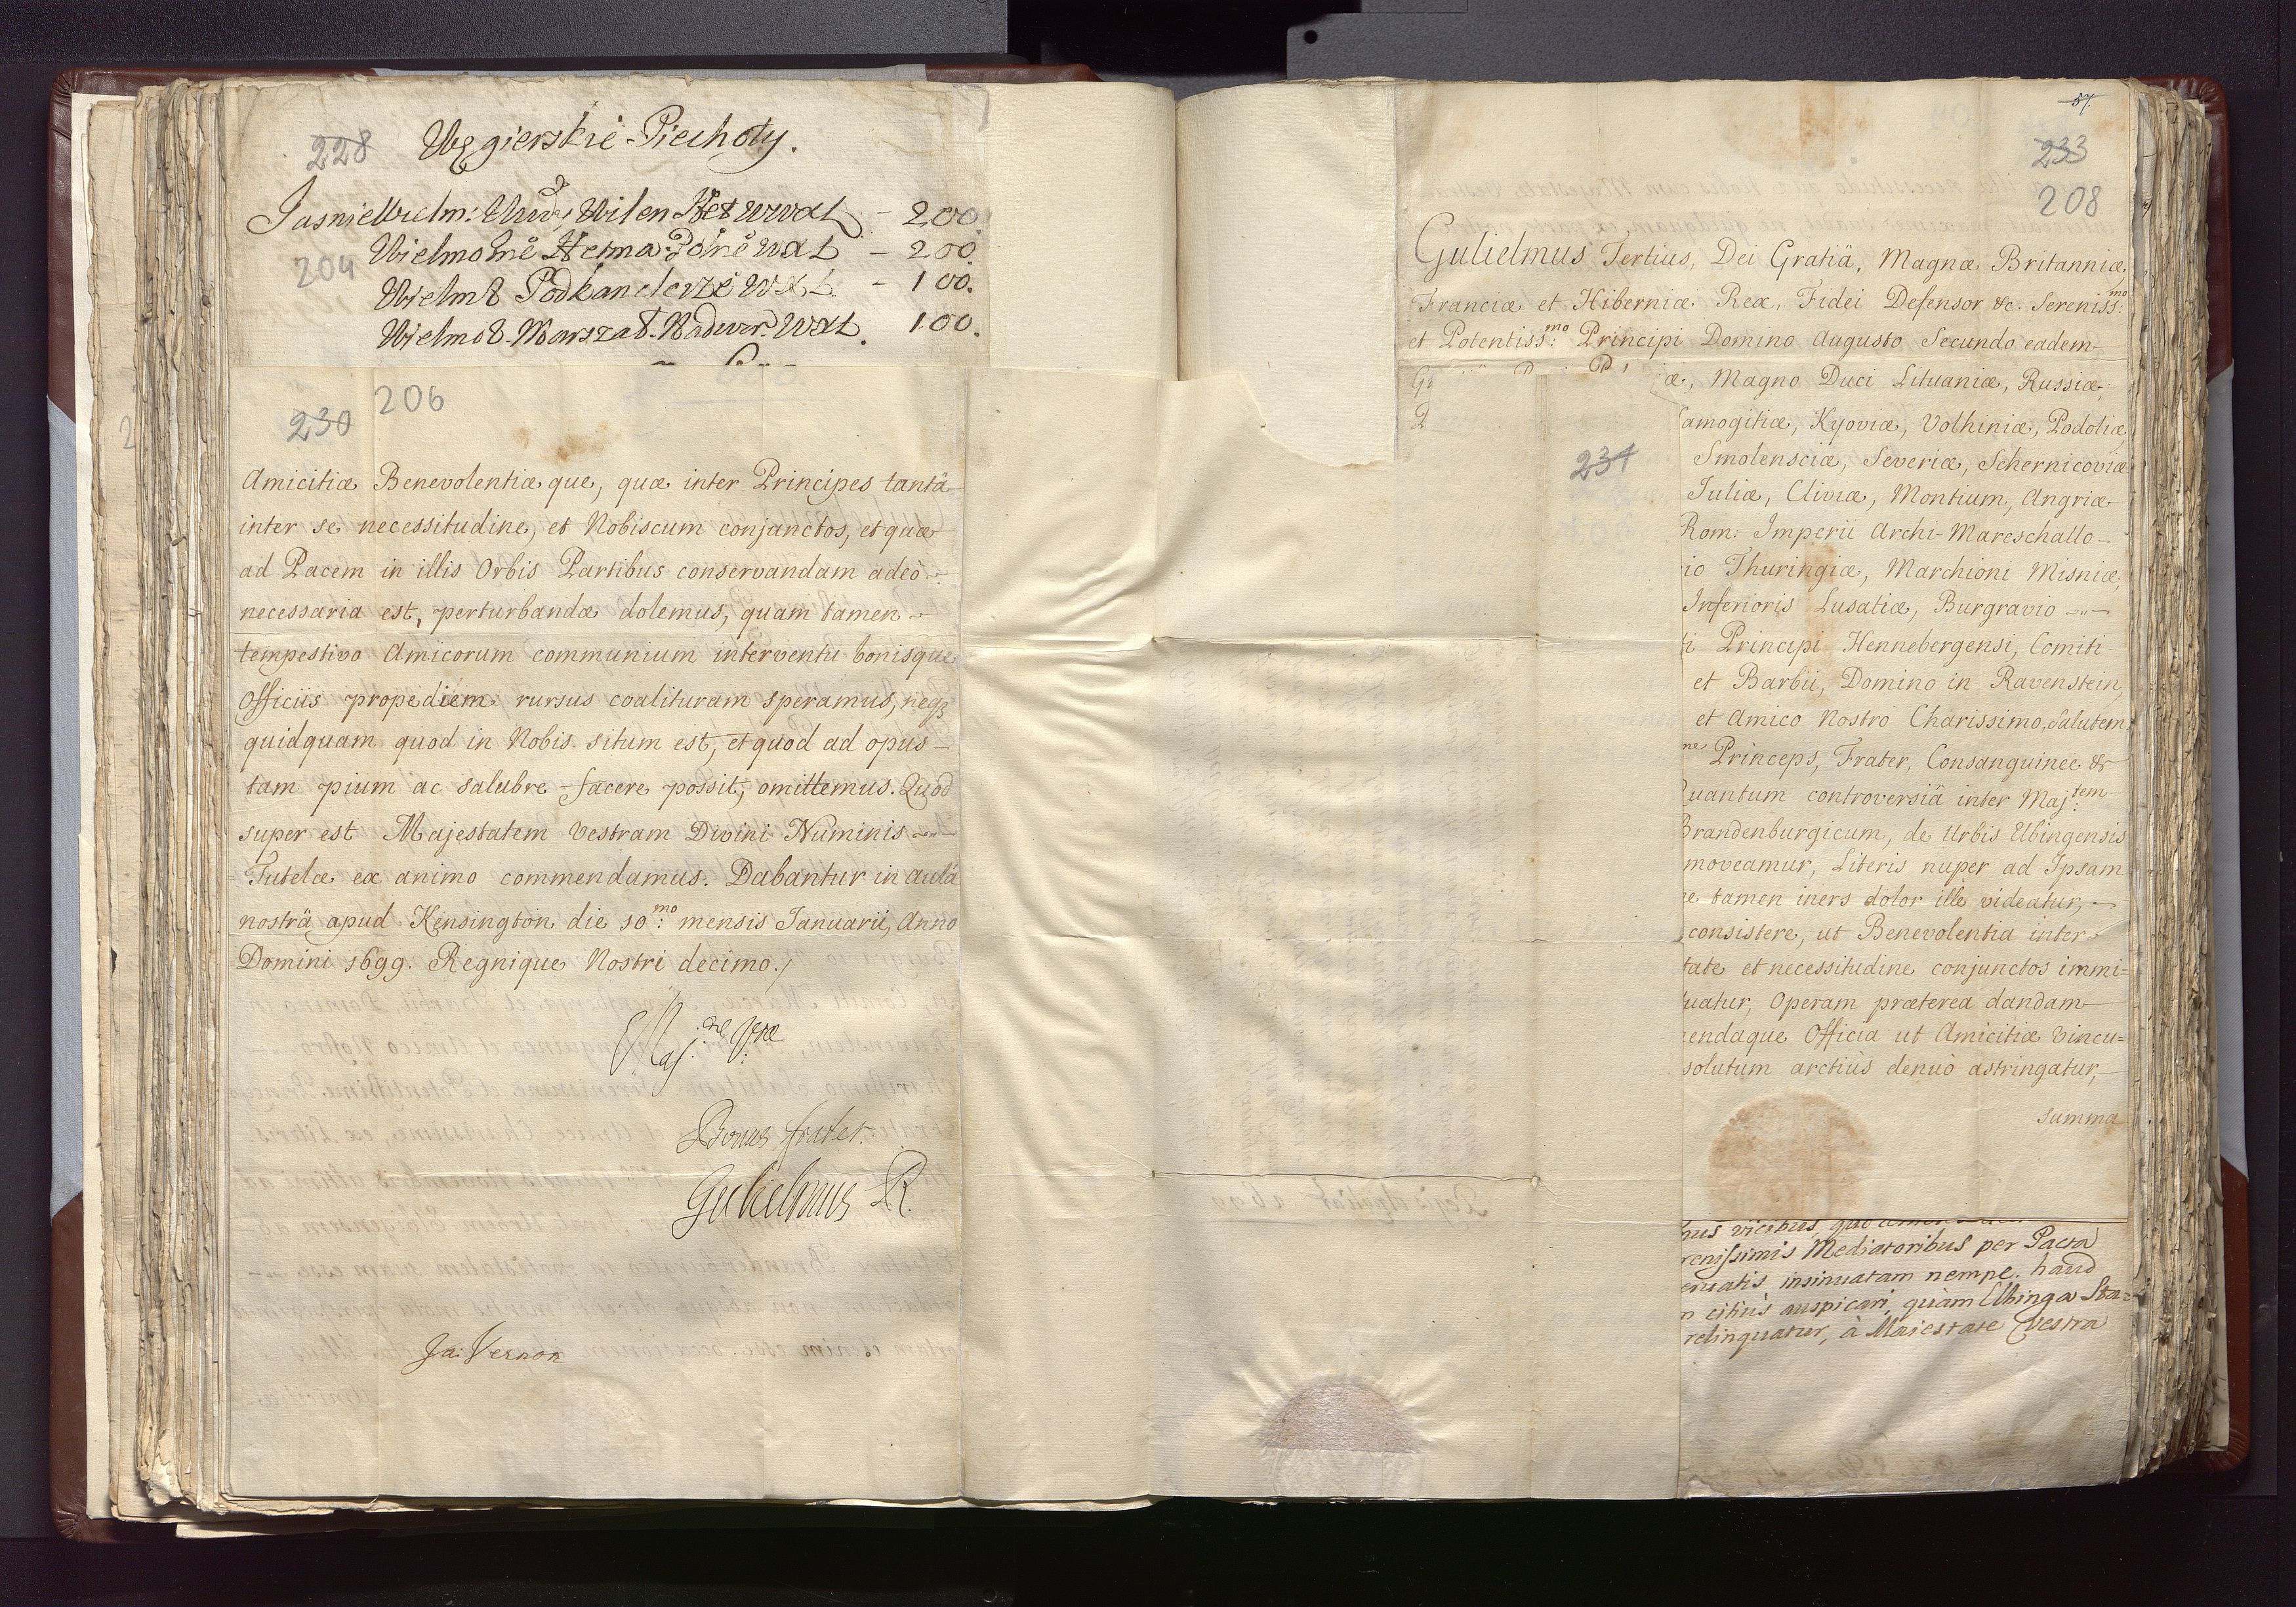 228
Węgierskie Piechoty.
204
- 200.
- 200.
- 100.
100.
230
206
Amicitiæ Benevolentiæque, quæ inter Principes tantâ
inter se necessitudine, et Nobiscum conjunctos, et quæ
ad Pacem in illis Orbis Partibus conservandam adeò
necessaria est, perturbandæ dolemus, quam tamen
tempestivo Amicorum communium interventu bonisque
Officiis propediem rursus coalituram speramus, neqꝫ
quidquam quod in Nobis situm est, et quod ad opus
tam pium ac salubre facere possit, omittemus. Quod
super est Majestatem Vestram Divini Numinis
Tutelæ ex animo commendamus. Dabantur in Aulâ
nostrâ apud Kensington die 10:mo mensis Januarii, Anno
Domini 1699. Regnique Nostri decimo./
Maj:ne Vræ
Bonus frater.
Gulielmus R.
Ja: Vernon
57.
233
208
Gulielmus Tertius, Dei Gratiâ, Magnæ Britanniæ,
Franciæ et Hiberniæ Rex, Fidei Defensor &c. Sereniss:mo
et Potentiss:mo Principi Domino Augusto Secundo eadem
æ, Magno Duci Lituaniæ, Russiæ,
amogitiæ, Kyoviæ, Volhiniæ, Podoliæ,
234
Smolensciæ, Severiæ, Schernicoviæ
Juliæ, Cliviæ, Montium, Angriæ
Rom: Imperii Archi-Mareschallo
io Thuringiæ, Marchioni Misniæ,
Inferioris Lusatiæ, Burgravio
i Principi Hennebergensi, Comiti
et Barbii, Domino in Ravenstein,
et Amico Nostro Charissimo, Salutem.
ne Princeps, Frater, Consanguinee &
uantum controversiâ inter Maj:tem
Brandenburgicum, de Urbis Elbingensis
moveamur, Literis nuper ad Ipsam
e tamen iners dolor ille videatur,
consistere, ut Benevolentia inter
tate et necessitudine conjunctos immi=
uatur, Operam præterea dandam
endaque Officia ut Amicitiæ Vincu=
solutum arctiùs denuò astringatur,
summa
nus vicibus,
renissimis Mediatoribus per Pacta
ervatis insinuatam nempe haud
n citiùs auspicari, quàm Elbinga Sta=
relinquatur, à Maiestate Vestra